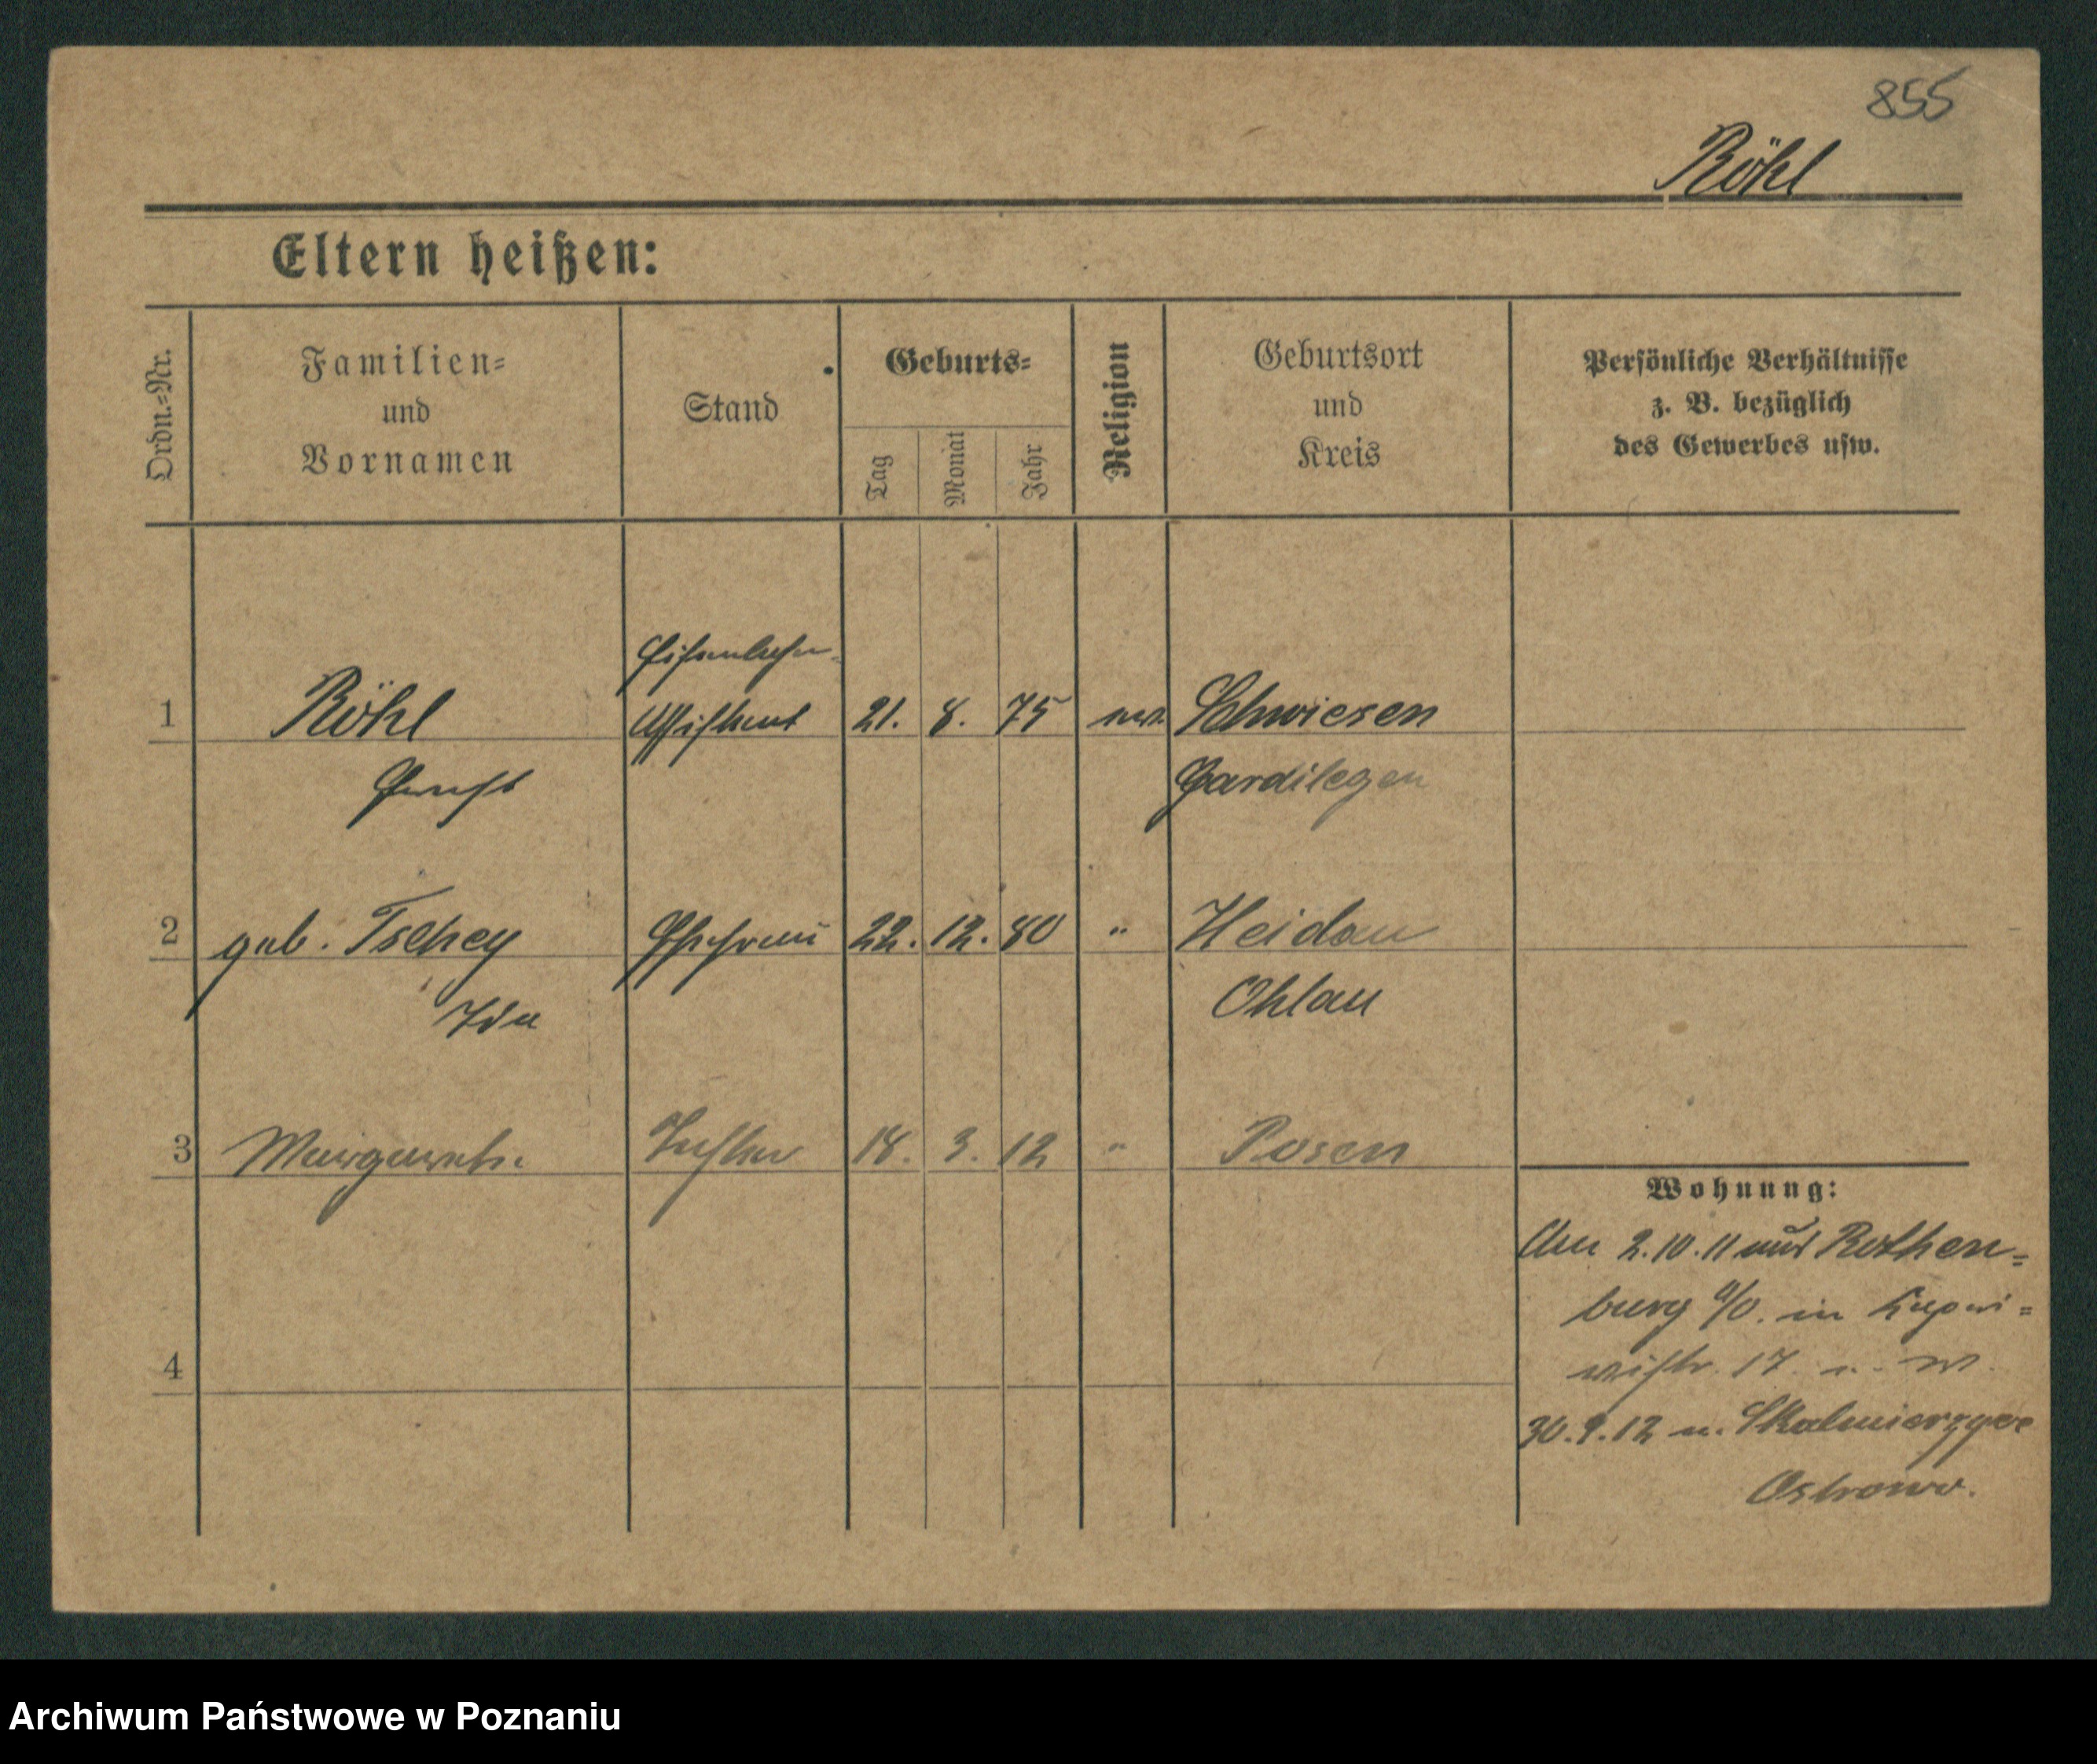 855
Röhl
Eltern heißen:
Ordn.-Nr.
Familien-
und
Vornamen
Stand
Geburts-
Tag
Monat
Jahr
Religion
Geburtsort
und
Kreis
Persönliche Verhältnisse
z. B. bezüglich
des Gewerbes usw.
Eisenbahn-
1 Röhl Assistent 21. 8. 75 ev. Schwiesen
Ernst Gardilegen
2 geb. Tschey Ehefrau 22. 12. 80 " Heidau
Ida Ohlau
3 Margarete Tochter 18. 3. 12 " Posen
Wohnung:
Am 2.10.11 aus Rothen-
burg a/O. in
17
30.9.12 n. Skalmierzyce
Ostrowo.
4
Archiwum Państwowe w Poznaniu